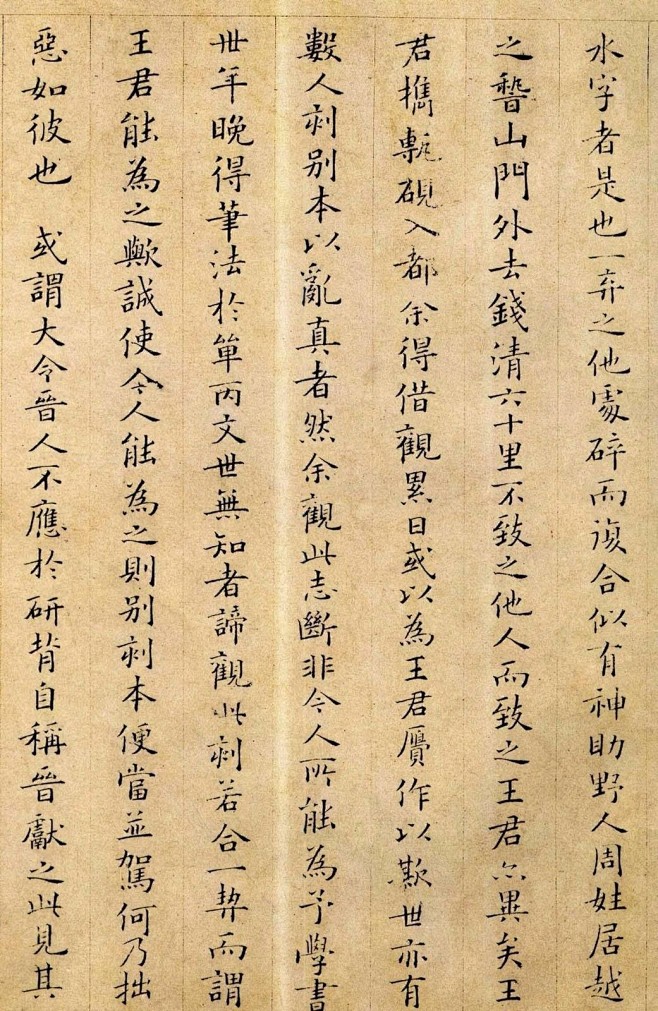 水字者是也一弃之他處碎而複合似有神助野人周姓居越
之稽山門外去錢清六十里不致之他人而致之王君亦異矣王
君攜甎硯入都余得借觀累日或以為王君贋作以欺世亦有
數人刻别本以亂真者然余觀此志斷非今人所能為予學書
卅年晚得筆法於單丙文世無知者諦觀此刻若合一契而謂
王君能為之歟誠使今人能為之則别刻本便當並駕何乃拙
惡如彼也 或謂大令晉人不應於研背自稱晉獻之此見其